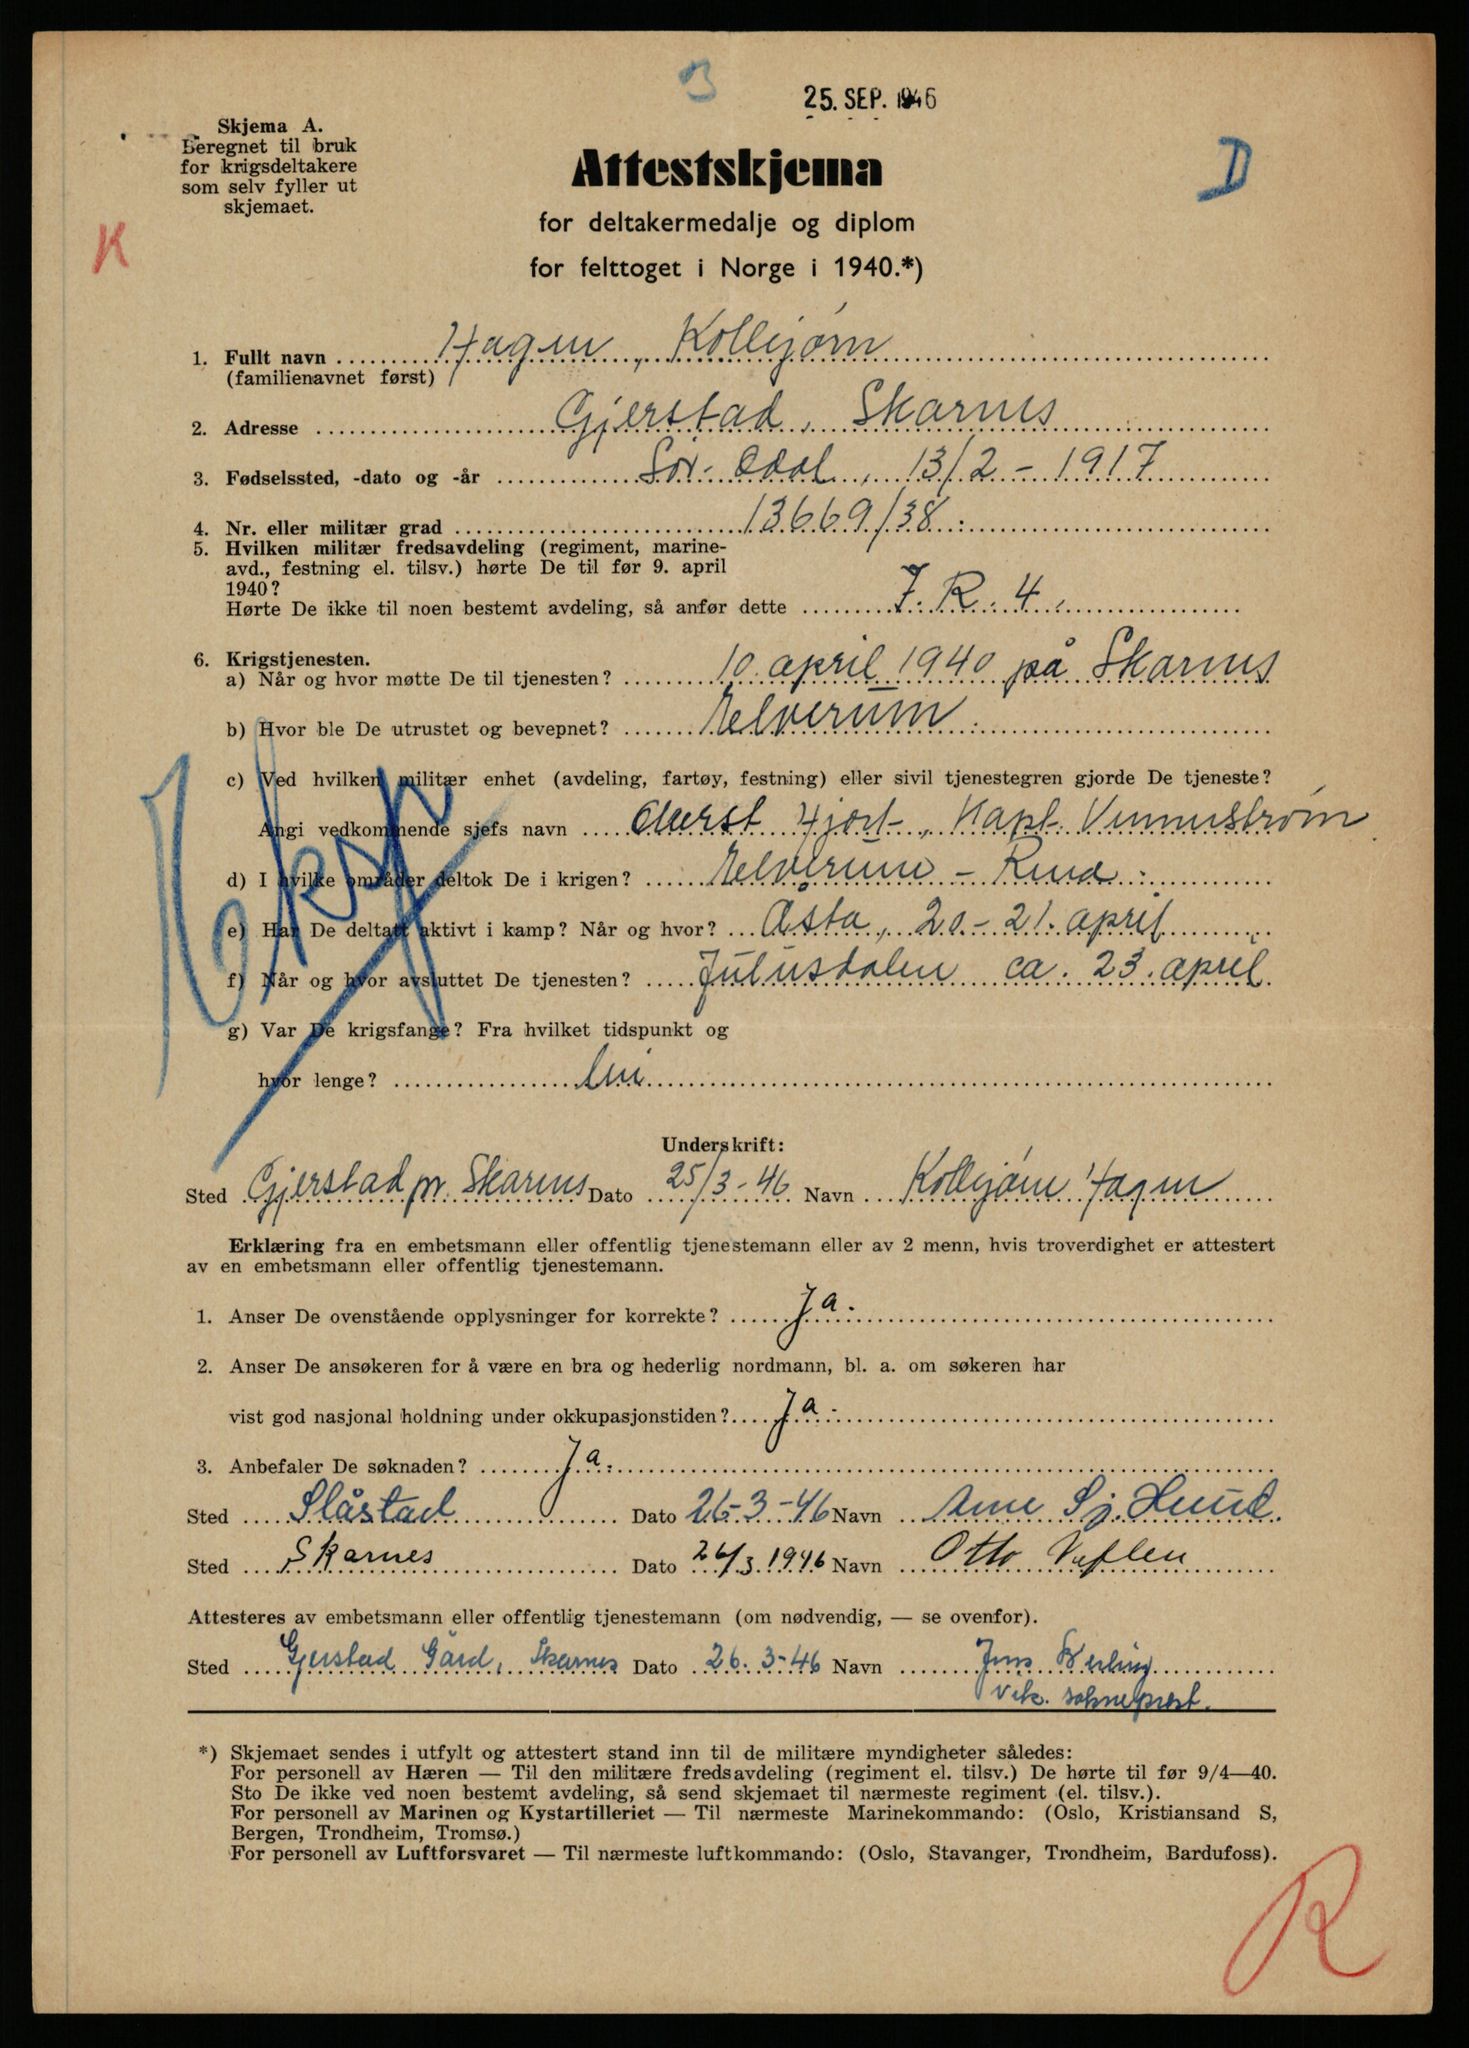 B
25. SEP. 1946
Skjema A.
Beregnet til bruk
for krigsdeltakere
som selv fyller ut
skjemaet.
D
K
Attestskjema
for deltakermedalje og diplom
for felttoget i Norge i 1940.*)
1. Fullt navn Hagen, Kolbjørn
(familienavnet først)
2. Adresse Gjerstad, Skarnes
3. Fødselssted, -dato og -år Sør-Odal, 13/2 - 1917
4. Nr. eller militær grad 13669/38.
5. Hvilken militær fredsavdeling (regiment, marine-
avd., festning el. tilsv.) hørte De til før 9. april
1940?
Hørte De ikke til noen bestemt avdeling, så anfør dette I.R. 4.
6. Krigstjenesten.
a) Når og hvor møtte De til tjenesten? 10. april 1940 på Skarnes
b) Hvor ble De utrustet og bevepnet? Elverum.
c) Ved hvilken militær enhet (avdeling, fartøy, festning) eller sivil tjenestegren gjorde De tjeneste?
Angi vedkommende sjefs navn Oberst Hjort, Kapt. Vennustrøm
d) I hvilke områder deltok De i krigen? Elverum - Rena.
e) Har De deltatt aktivt i kamp? Når og hvor? Åsta, 20.-21. april
f) Når og hvor avsluttet De tjenesten? Julusdalen ca. 23. april.
g) Var De krigsfange? Fra hvilket tidspunkt og
hvor lenge? Nei
Underskrift:
Sted Gjerstad pr. Skarnes Dato 25/3-46 Navn Kolbjørn Hagen
Erklæring fra en embetsmann eller offentlig tjenestemann eller av 2 menn, hvis troverdighet er attestert
av en embetsmann eller offentlig tjenestemann.
1. Anser De ovenstående opplysninger for korrekte? Ja.
2. Anser De ansøkeren for å være en bra og hederlig nordmann, bl. a. om søkeren har
vist god nasjonal holdning under okkupasjonstiden? Ja.
3. Anbefaler De søknaden? Ja.
Sted Slåstad Dato 26-3-46 Navn Arne Sj.
Sted Skarnes Dato 26/3 1946 Navn Otto
Attesteres av embetsmann eller offentlig tjenestemann (om nødvendig, — se ovenfor).
Sted Gjerstad Gård, Skarnes Dato 26.3-46 Navn Jens
vik. sokneprest.
*) Skjemaet sendes i utfylt og attestert stand inn til de militære myndigheter således:
For personell av Hæren — Til den militære fredsavdeling (regiment el. tilsv.) De hørte til før 9/4—40.
Sto De ikke ved noen bestemt avdeling, så send skjemaet til nærmeste regiment (el. tilsv.).
For personell av Marinen og Kystartilleriet — Til nærmeste Marinekommando: (Oslo, Kristiansand S,
Bergen, Trondheim, Tromsø.)
For personell av Luftforsvaret — Til nærmeste luftkommando: (Oslo, Stavanger, Trondheim, Bardufoss).
R